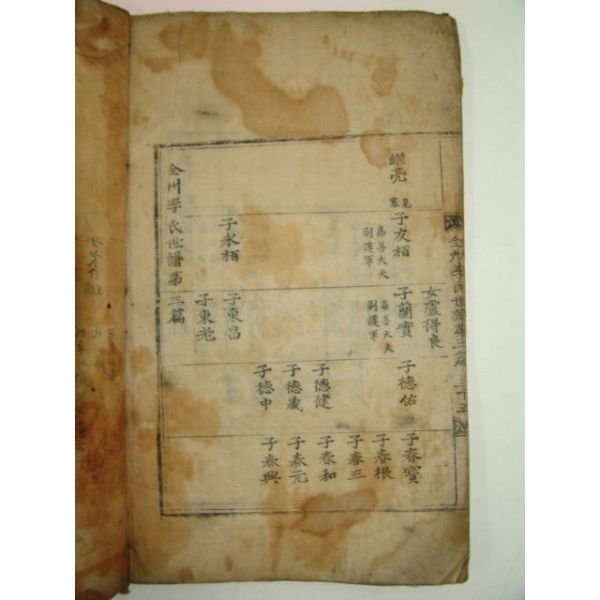 全州李氏世譜第三篇 三十五
讚亮
見寨
子友栢
嘉善大夫
副護軍
子永栢
女盧得良
子蘭實
嘉善大夫
副護軍
子東昌
子東老
子德佑
子德健
子德成
子德中
子春實
子春根
子春三
子春和
子春元
子春興
全州李氏世譜第三篇